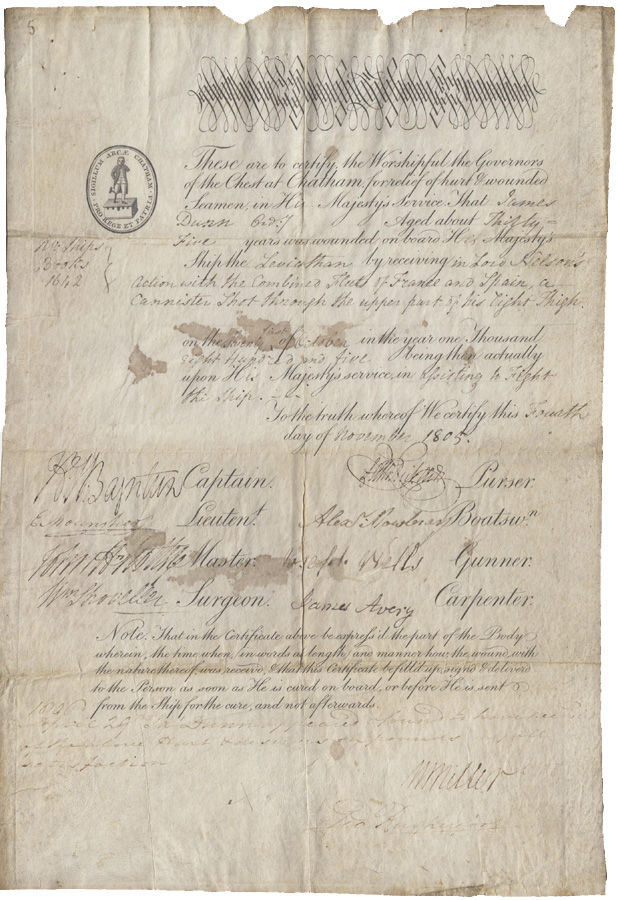 5
SIGILLUM ARCÆ CHATHAM
PRO REGE ET PATRIA
These are to certify the Worshipful the Governors
of the Chest at Chatham, for relief of hurt & wounded
Seamen, in His Majesty's Service That James
Dunn Ordy Aged about Thirty-
Five years was wounded on board His Majesty's
Ship the Leviathan by receiving in Lord Nelson's
Action with the Combined Fleets of France and Spain, a
Cannister Shot through the upper part of his right Thigh.
No Ships
Books
1642
on the first of in the year one Thousand
Eight Hundred and five being then actually
upon His Majesty's service, in assisting to Fight
the Ship.
To the truth whereof We certify this Fourth
day of November 1805.
Hy W Bayntun Captain. Purser.
Lieutent. Alexr Boatswn.
Master. Joseph Wells Gunner.
Wm Shoveller Surgeon. James Avery Carpenter.
Note. That in the Certificate above be express'd the part of the Body
wherein, the time when, in words at length, and manner how the wound, with
the nature thereof was receiv'd, & that this Certificate be fill'd up, sign'd & deliver'd
to the Person as soon as He is cured on board, or before He is sent
from the Ship for the cure, and not afterwards.
April 29 Dunn appeared & found to
of the above Hurt
satisfaction
W Miller